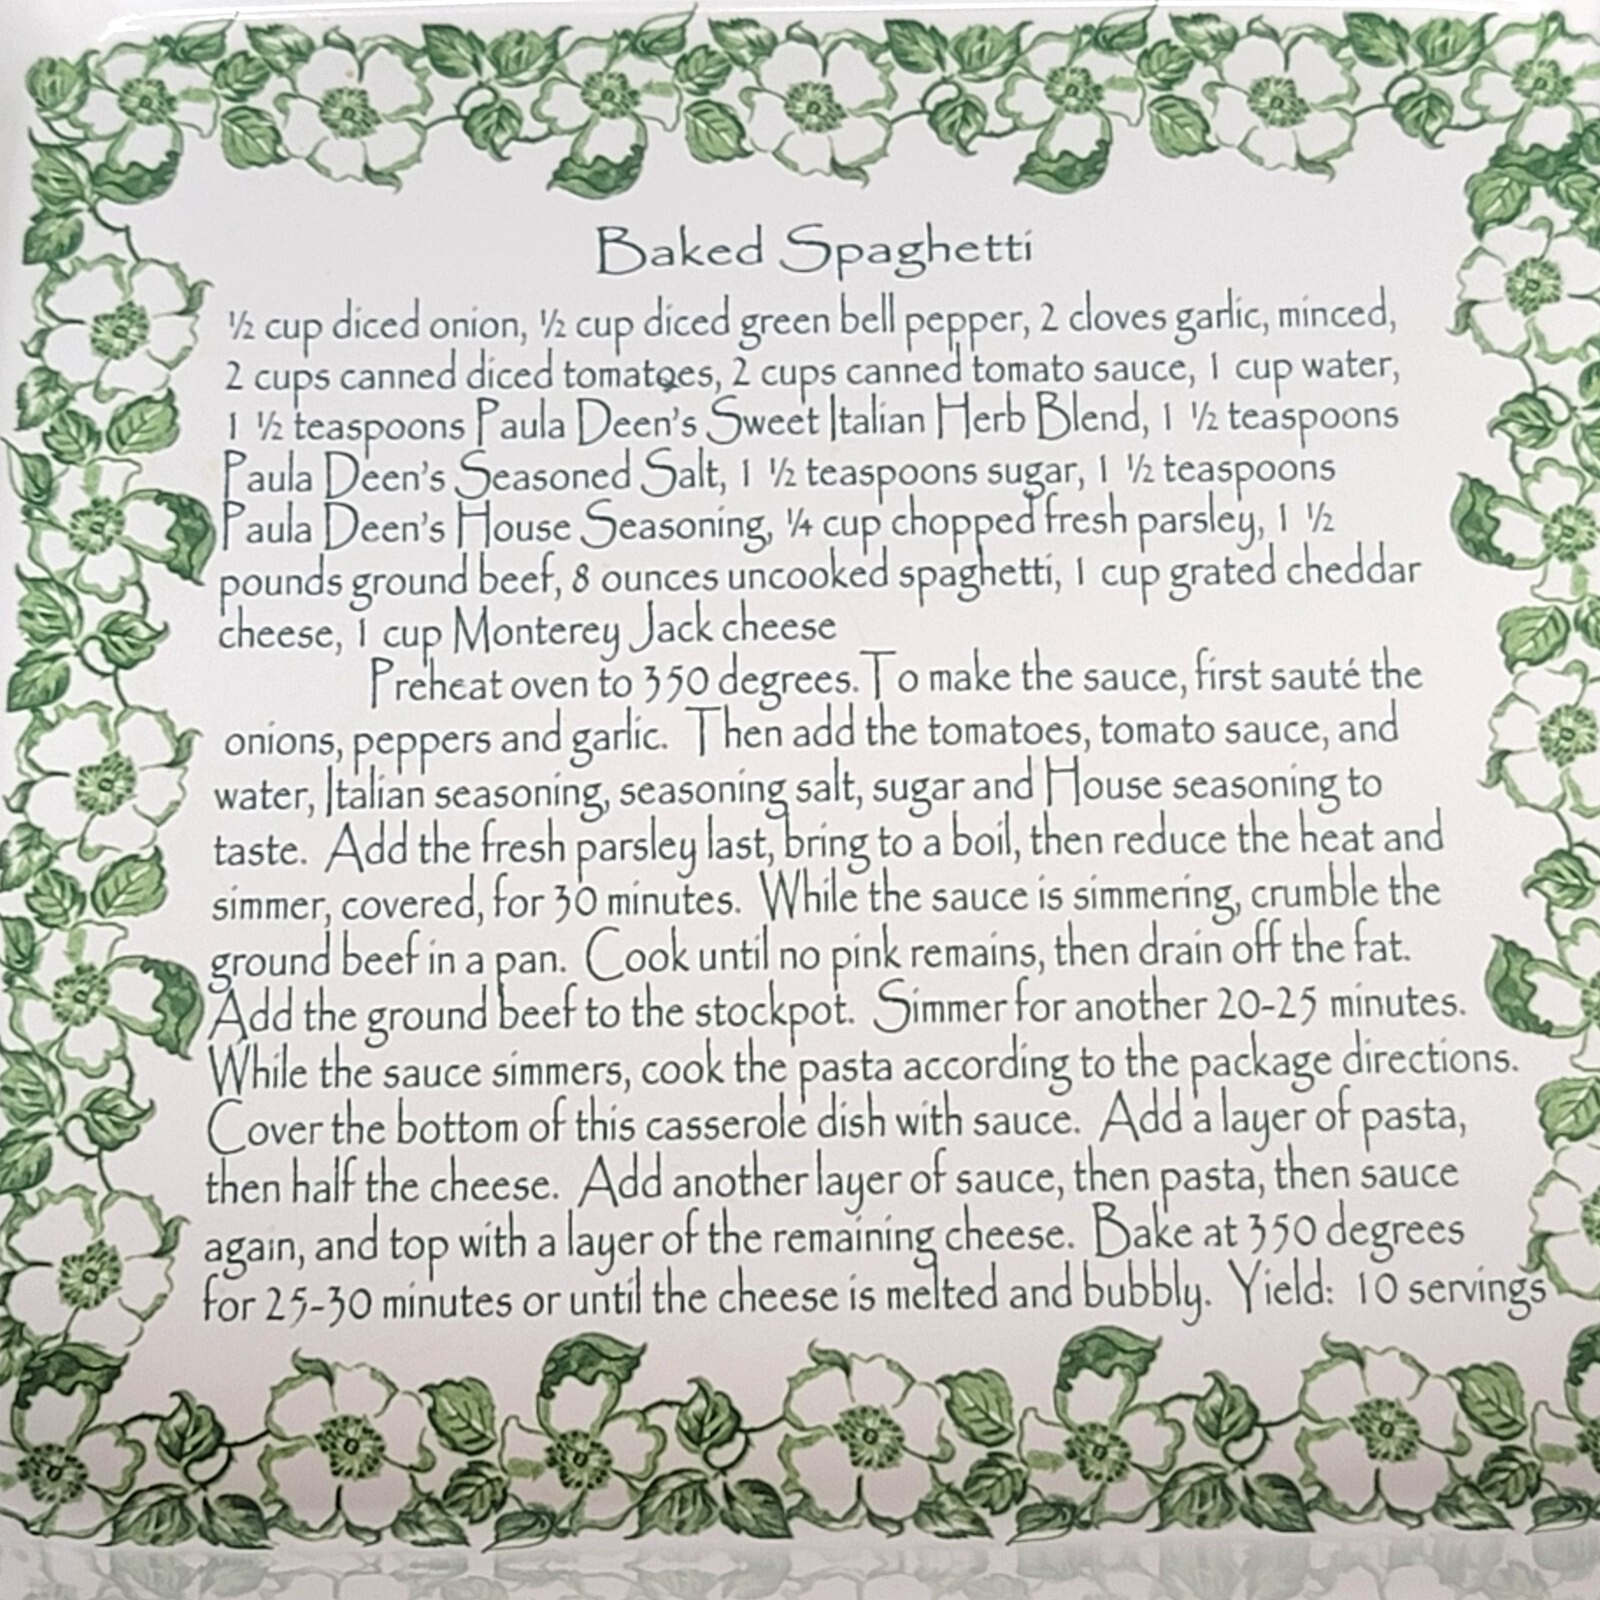 Baked Spaghetti
½ cup diced onion, ½ cup diced green bell pepper, 2 cloves garlic, minced,
2 cups canned diced tomatoes, 2 cups canned tomato sauce, 1 cup water,
1 ½ teaspoons Paula Deen's Sweet Italian Herb Blend, 1 ½ teaspoons
Paula Deen's Seasoned Salt, 1 ½ teaspoons sugar, 1 ½ teaspoons
Paula Deen's House Seasoning, ¼ cup chopped fresh parsley, 1 ½
pounds ground beef, 8 ounces uncooked spaghetti, 1 cup grated cheddar
cheese, 1 cup Monterey Jack cheese
Preheat oven to 350 degrees. To make the sauce, first sauté the
onions, peppers and garlic. Then add the tomatoes, tomato sauce, and
water, Italian seasoning, seasoning salt, sugar and House seasoning to
taste. Add the fresh parsley last, bring to a boil, then reduce the heat and
simmer, covered, for 30 minutes. While the sauce is simmering, crumble the
ground beef in a pan. Cook until no pink remains, then drain off the fat.
Add the ground beef to the stockpot. Simmer for another 20-25 minutes.
While the sauce simmers, cook the pasta according to the package directions.
Cover the bottom of this casserole dish with sauce. Add a layer of pasta,
then half the cheese. Add another layer of sauce, then pasta, then sauce
again, and top with a layer of the remaining cheese. Bake at 350 degrees
for 25-30 minutes or until the cheese is melted and bubbly. Yield: 10 servings